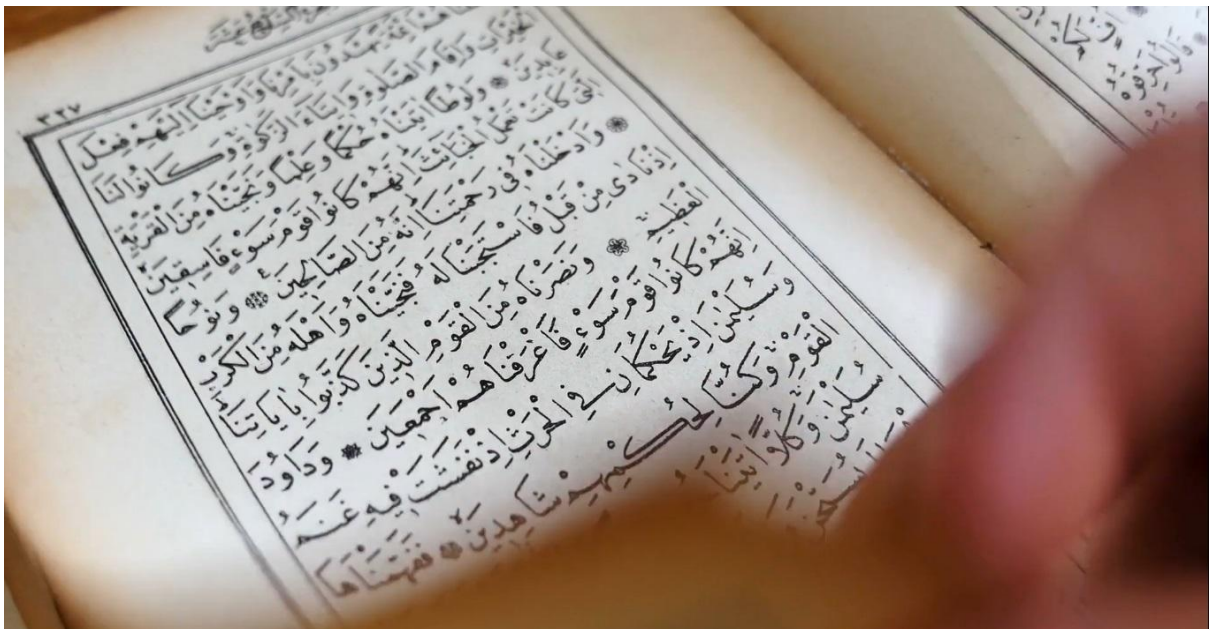 ٣٢٧
يَهْدُونَ بِاَمْرِنَا وَاَوْحَيْنَا اِلَيْهِمْ فِعْلَ
الْخَيْرَاتِ وَاِقَامَ الصَّلٰوةِ وَاِيتَاءَ الزَّكٰوةِ وَكَانُوا لَنَا
عَابِدِينَ ۞ وَلُوطًا اٰتَيْنَاهُ حُكْمًا وَعِلْمًا وَنَجَّيْنَاهُ مِنَ الْقَرْيَةِ
الَّتِى كَانَتْ تَعْمَلُ الْخَبَائِثَ اِنَّهُمْ كَانُوا قَوْمَ سَوْءٍ فَاسِقِينَ
۞ وَاَدْخَلْنَاهُ فِى رَحْمَتِنَا اِنَّهُ مِنَ الصَّالِحِينَ ۞ وَنُوحًا
اِذْ نَادٰى مِنْ قَبْلُ فَاسْتَجَبْنَا لَهُ فَنَجَّيْنَاهُ وَاَهْلَهُ مِنَ الْكَرْبِ
الْعَظِيمِ ۞ وَنَصَرْنَاهُ مِنَ الْقَوْمِ الَّذِينَ كَذَّبُوا بِاٰيَاتِنَا
اِنَّهُمْ كَانُوا قَوْمَ سَوْءٍ فَاَغْرَقْنَاهُمْ اَجْمَعِينَ ۞ وَدَاوُدَ
وَسُلَيْمٰنَ اِذْ يَحْكُمَانِ فِى الْحَرْثِ اِذْ نَفَشَتْ فِيهِ غَنَمُ
الْقَوْمِ وَكُنَّا لِحُكْمِهِمْ شَاهِدِينَ ۞ فَفَهَّمْنَاهَا
سُلَيْمٰنَ وَكُلًّا اٰتَيْنَا
قَالُوا حَرِّقُوهُ